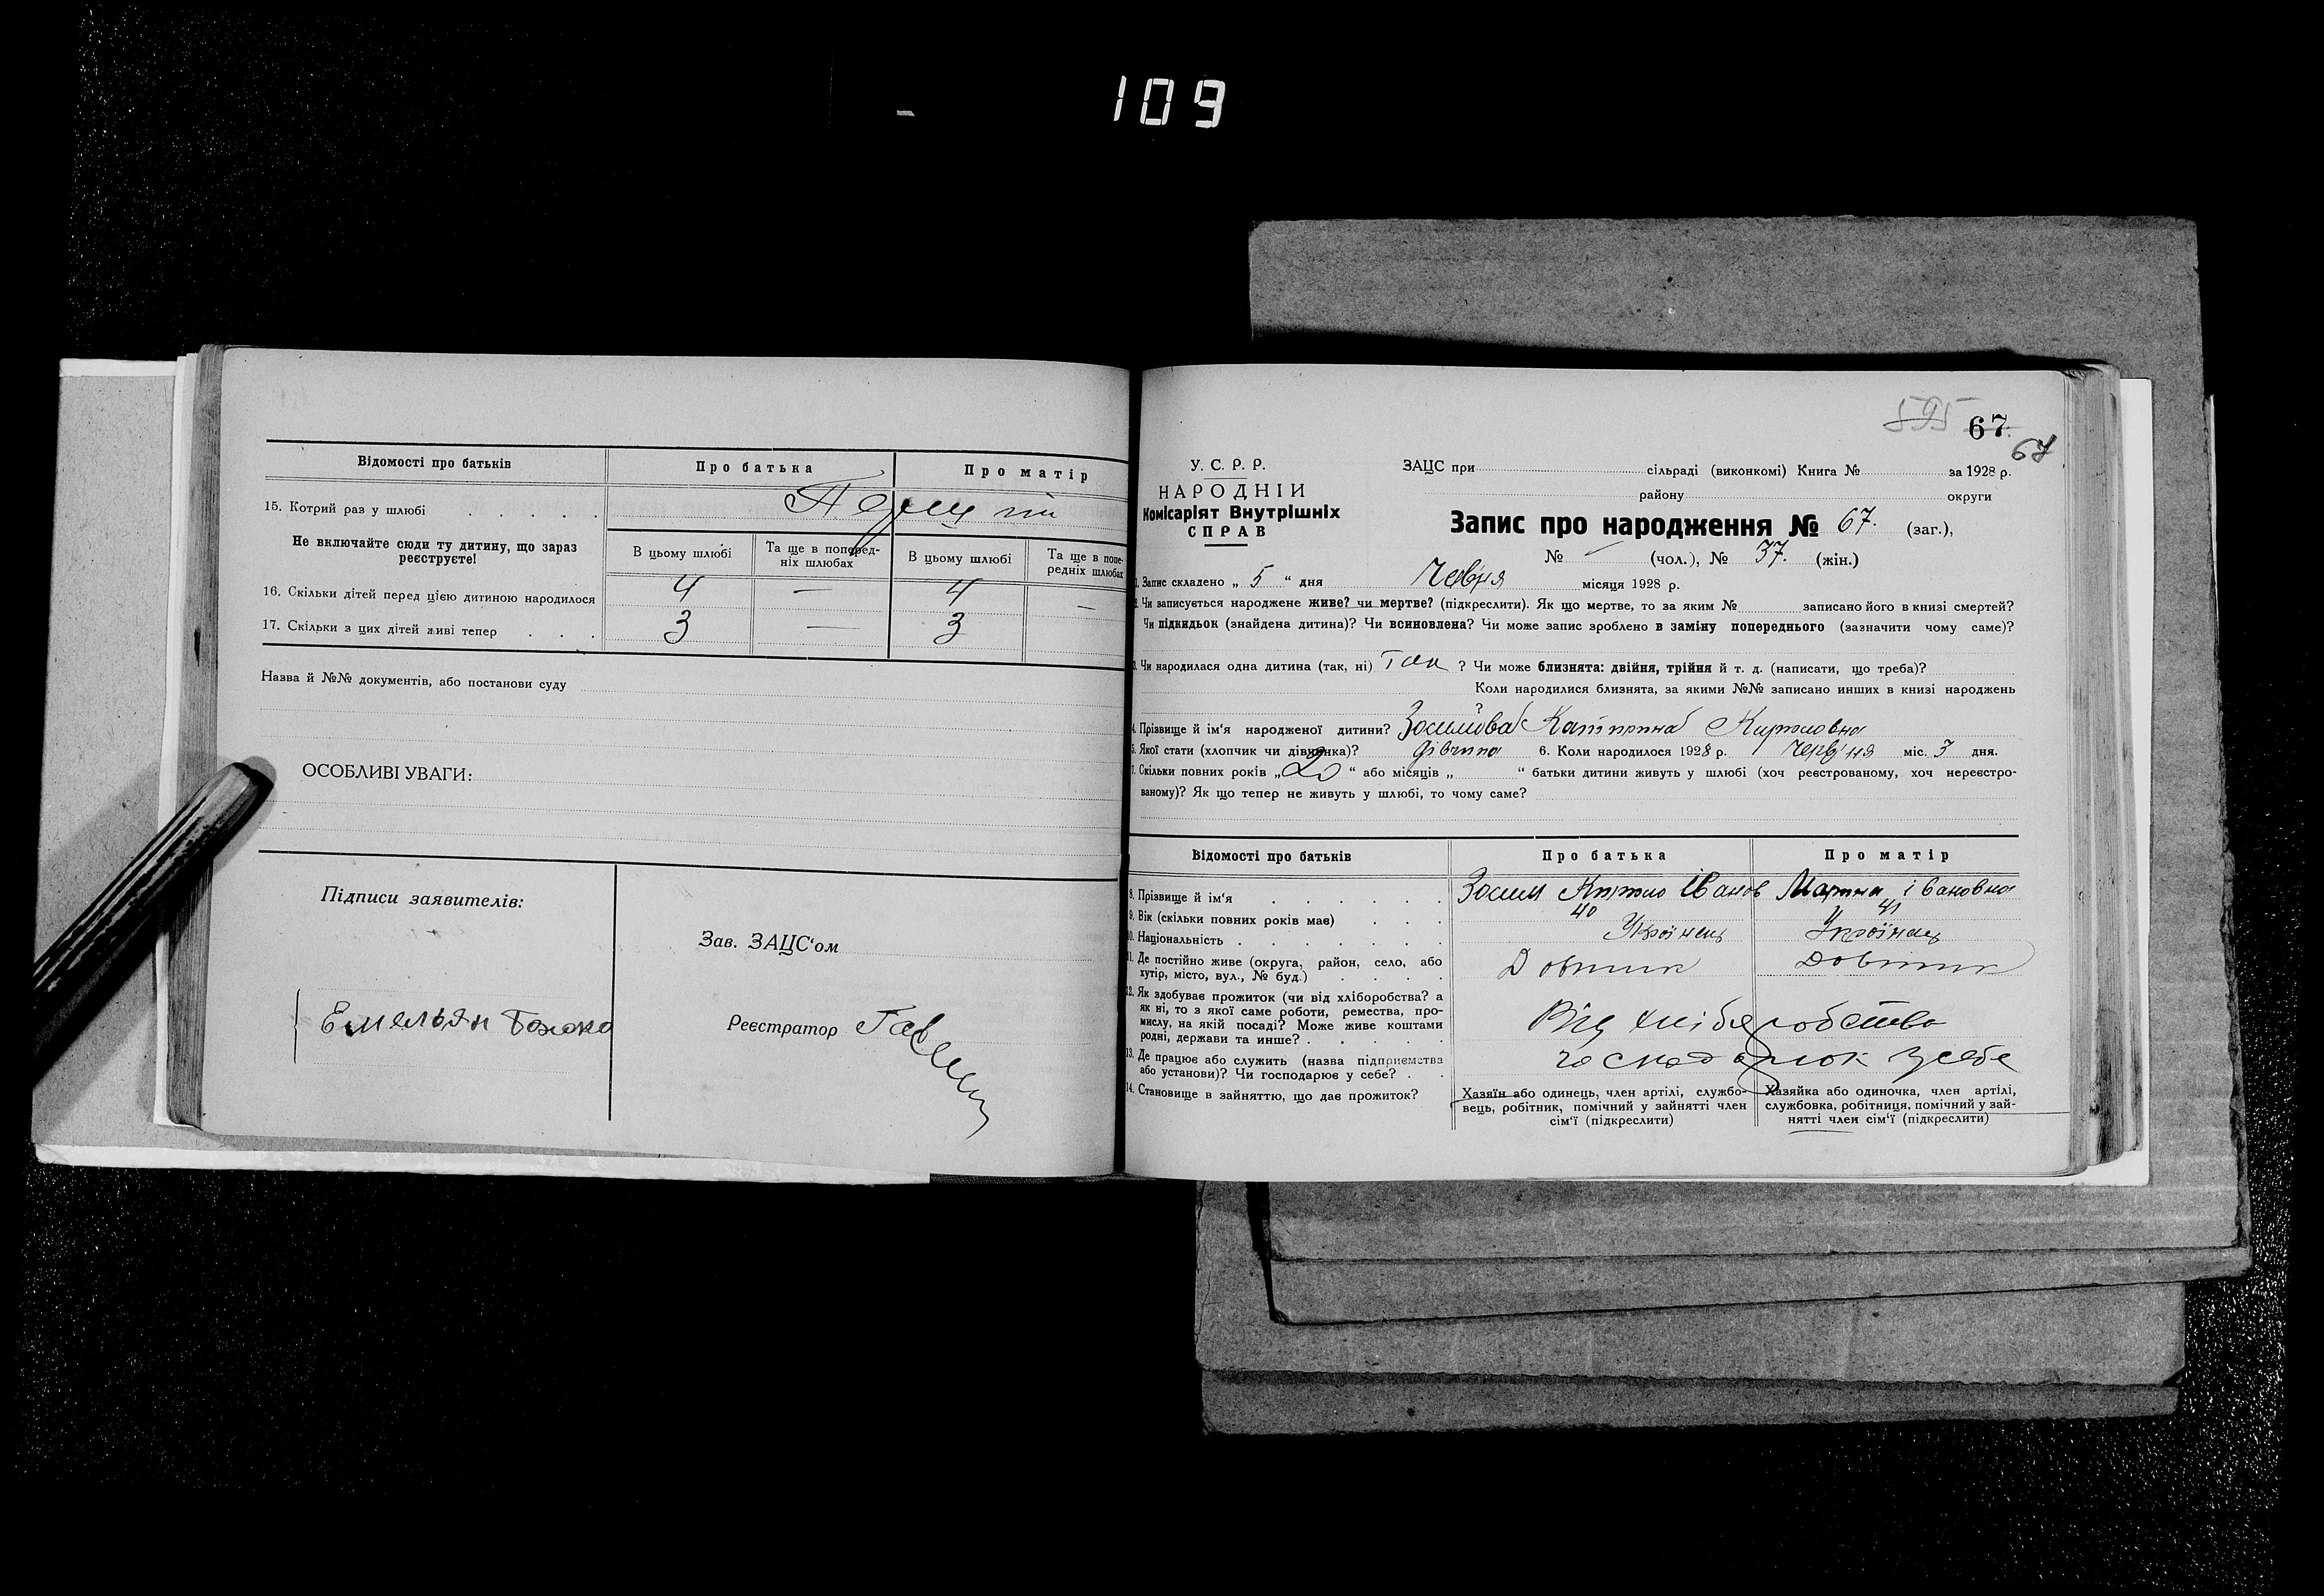 109
Відомості про батьків
Про батька
Про матір
15. Котрий раз у шлюбі
Перший
Не включайте сюди ту дитину, що зараз
реєструєте!
В цьому шлюбі
Та ще в поперед-
ніх шлюбах
В цьому шлюбі
Та ще в попе-
редніх шлюбах
16. Скільки дітей перед цією дитиною народилося
4 — 4 —
17. Скільки з цих дітей живі тепер
3 — 3
Назва й №№ документів, або постанови суду
ОСОБЛИВІ УВАГИ:
Підписи заявителів:
Емельян
Зав. ЗАЦС'ом
Реєстратор
595 67
67
У. С. Р. Р.
НАРОДНІЙ
Комісаріят Внутрішніх
СПРАВ
ЗАЦС при сільраді (виконкомі) Книга № за 1928 р.
району округи
Запис про народження № 67. (заг.),
№ — (чол.), № 37. (жін.)
1. Запис складено „ 5 “ дня Червня місяця 1928 р.
2. Чи записується народжене живе? чи мертве? (підкреслити). Як що мертве, то за яким № записано його в книзі смертей?
Чи підкидьок (знайдена дитина)? Чи всиновлена? Чи може запис зроблено в заміну попереднього (зазначити чому саме)?
3. Чи народилася одна дитина (так, ні) Так ? Чи може близнята: двійня, трійня й т. д. (написати, що треба)?
Коли народилися близнята, за якими №№ записано инших в книзі народжень
?
4. Прізвище й ім'я народженої дитини? Зосимова Катирина Кириловна
5. Якої стати (хлопчик чи дівчинка)? дівчина 6. Коли народилося 1928 р. Червня міс. 3 дня.
7. Скільки повних років „ 20 “ або місяців „ “ батьки дитини живуть у шлюбі (хоч реєстрованому, хоч нереєстро-
ваному)? Як що тепер не живуть у шлюбі, то чому саме?
Відомості про батьків
Про батька
Про матір
8. Прізвище й ім'я
Зосим Кирило Іванов
Марина Івановна
9. Вік (скільки повних років має)
40
41
10. Національність
Українець
Українець
11. Де постійно живе (округа, район, село, або
хутір, місто, вул., № буд.)
Довжик
Довжик
12. Як здобуває прожиток (чи від хліборобства? а
як ні, то з якої саме роботи, ремества, про-
мислу, на якій посаді? Може живе коштами
родні, держави та инше?
Від хліборобства
13. Де працює або служить (назва підприємства
або установи)? Чи господарює у себе?
господарює у себе
14. Становище в зайняттю, що дає прожиток?
Хазяїн або одинець, член артілі, службо-
вець, робітник, помічний у зайнятті член
сім'ї (підкреслити)
Хазяйка або одиночка, член артілі,
службовка, робітниця, помічний у зай-
нятті член сім'ї (підкреслити)